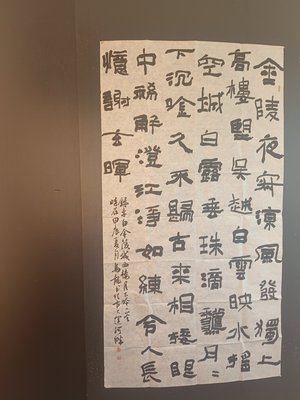 金陵夜寂涼風發獨上
高樓望吳越白雲映水搖
空城白露垂珠滴龝月〻
下沉吟久不歸古來相接眼
中稀解澄江淨如練令人長
憶謝玄暉
錄李白金陵城西樓月下吟一首
時在甲辰夏月